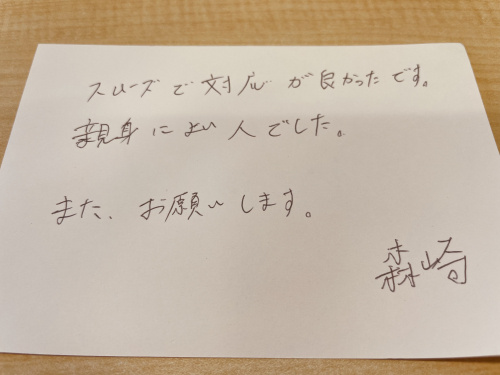 スムーズで対応が良かったです。
親身によい人でした。
また、お願いします。
森崎